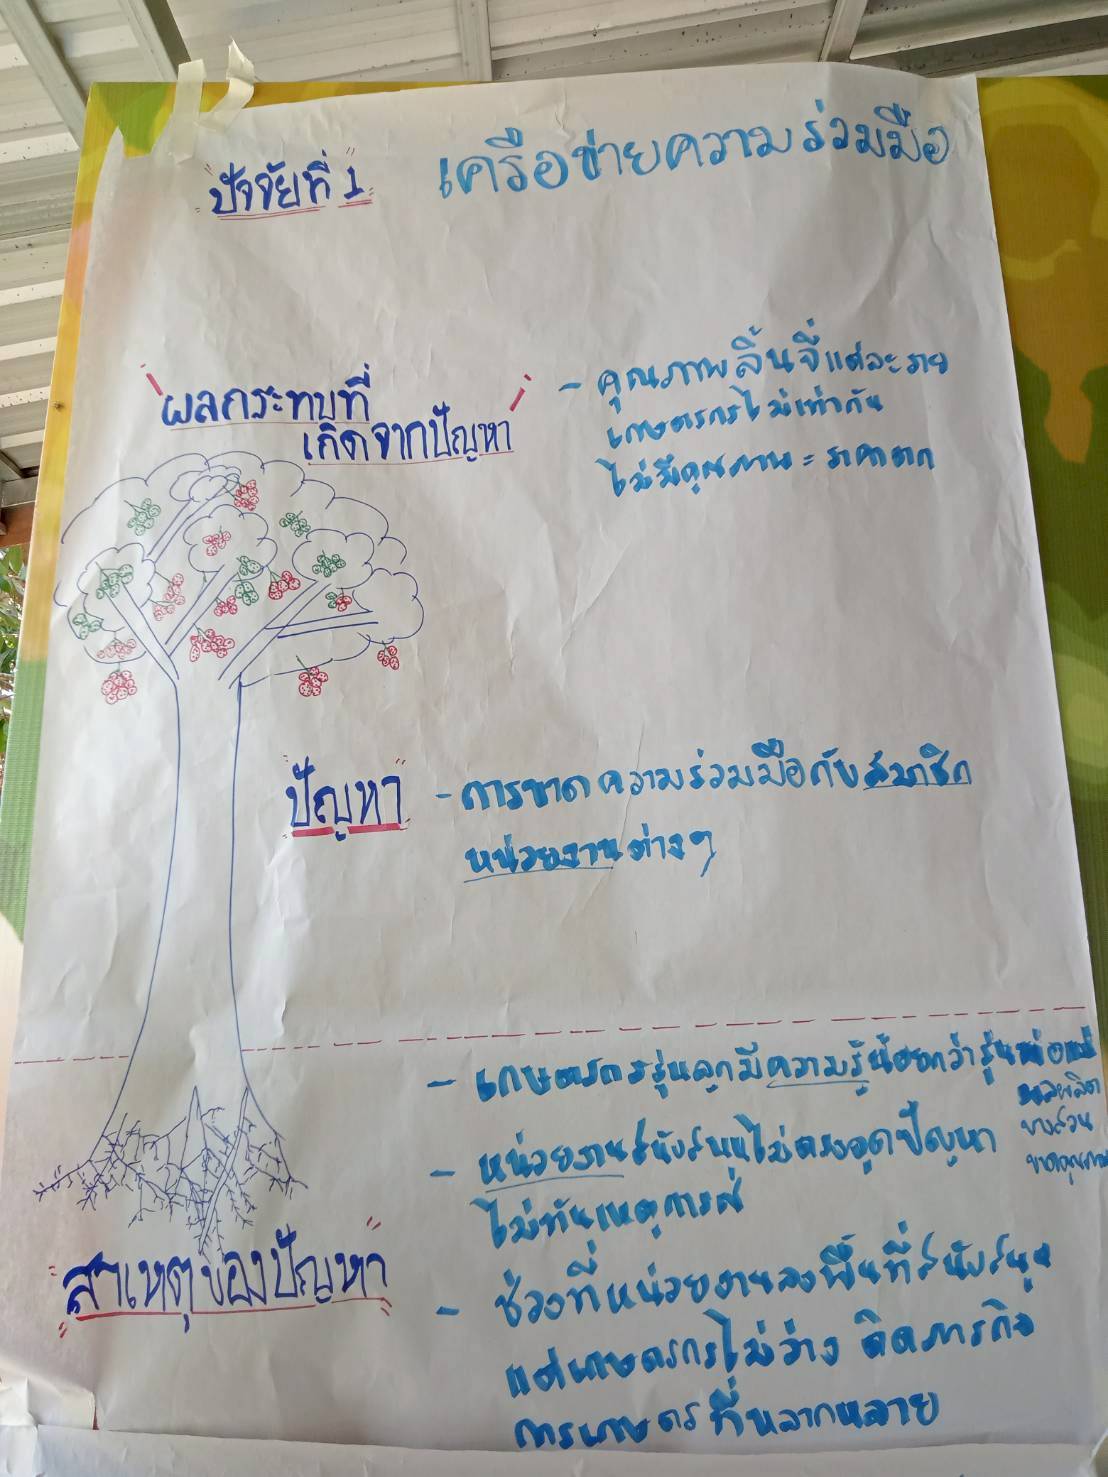 ปัจจัยที่ 1
เครือข่ายความร่วมมือ
ผลกระทบที่
เกิดจากปัญหา
- คุณภาพลิ้นจี่แต่ละราย
เกษตรกรไม่เท่ากัน
ไม่มีคุณภาพ = ราคาตก
ปัญหา
- การขาดความร่วมมือกับสมาชิก
หน่วยงานต่างๆ
- เกษตรกรรุ่นลูกมีความรู้น้อยกว่ารุ่นพ่อแม่
ผลผลิต
บางส่วน
ขาดคุณภาพ
- หน่วยงานสนับสนุนไม่ตรงจุดปัญหา
ไม่ทันเหตุการณ์
สาเหตุของปัญหา
- ช่วงที่หน่วยงานลงพื้นที่สนับสนุน
แต่เกษตรกรไม่ว่าง ติดภารกิจ
การเกษตรที่หลากหลาย